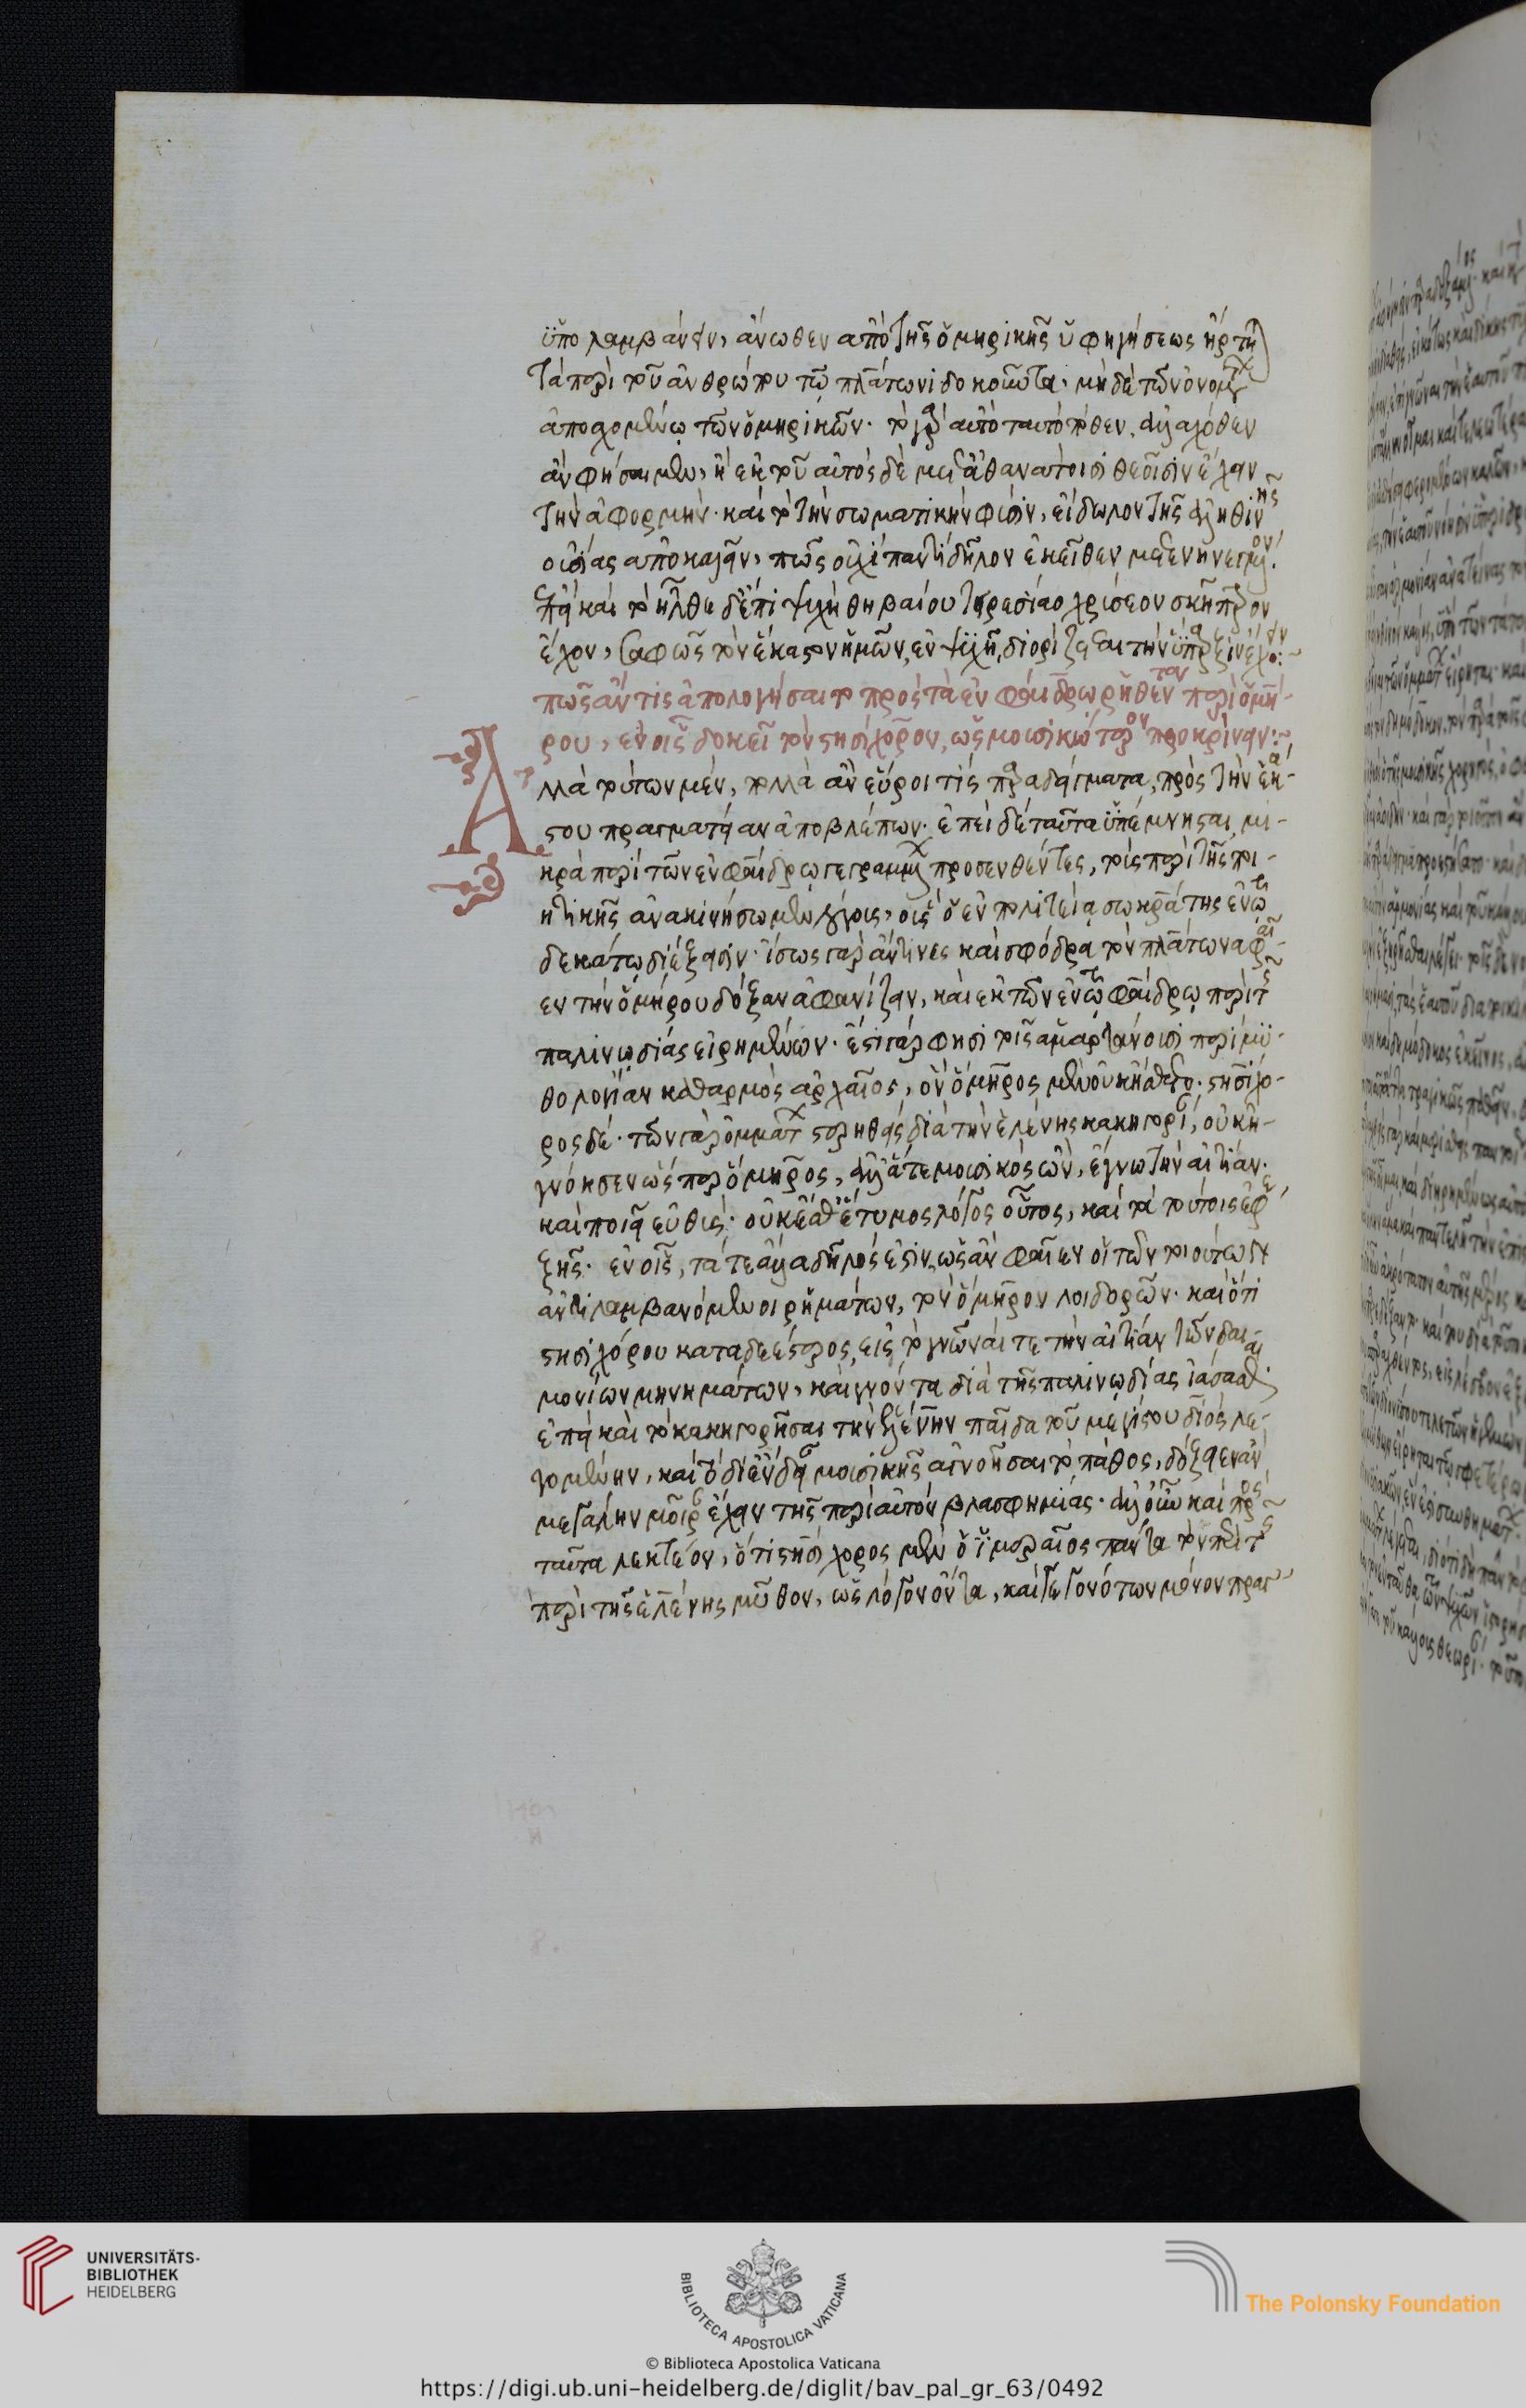 ὑπολαμβάνειν, ἄνωθεν ἀπὸ τῆς ὁμηρικῆς ὑφηγήσεως ἤρτη
τὰ περὶ τοῦ ἀνθρώπου τῷ πλάτωνι δοκοῦντα. μηδὲ τῶν ὀνομάτων
ἀποσχομένῳ τῶν ὁμηρικῶν. τὸ γὰρ αὐτὸ ταυτὸ πόθεν ἀλλαχόθεν
ἂν φήσαιμεν, ἢ ἐκ τοῦ αὐτὸς δὲ μετ' ἀθανάτοισι θεοῖσιν ἔχειν
τὴν ἀφορμήν. καὶ τὸ τὴν σωματικὴν φύσιν, εἴδωλον τῆς ἀληθινῆς
οὐσίας ἀποκαλεῖν, πῶς οὐχὶ παντὶ δῆλον ἐκεῖθεν μετενηνεγμένον.
ἐπεὶ καὶ τὸ ἦλθε δ' ἐπὶ ψυχὴ θηβαίου τειρεσίαο χρύσεον σκῆπτρον
ἔχον, σαφῶς τὸν ἕκαστον ἡμῶν, ἐν ψυχῇ διορίζεται τὴν ὕπαρξιν ἔχειν:~
πῶς ἄν τις ἀπολογήσαιτο πρὸς τὰ ἐν φαίδρῳ ῥηθέντα περὶ ὁμή-
ρου, ἐν οἷς δοκεῖ τὸν στησίχορον, ὡς μουσικώτερον προκρίνειν:~
Αλλὰ τούτων μέν, πολλὰ ἂν εὕροι τις παραδείγματα, πρὸς τὴν ἑκά-
στου πραγματείαν ἀποβλέπων. ἐπεὶ δὲ ταῦτα ὑπέμνησται, μι-
κρὰ περὶ τῶν ἐν φαίδρῳ γεγραμμένων προσενθέντες, τοὺς περὶ τῆς ποι-
ητικῆς ἀνακινήσωμεν λόγους, οὓς ὁ ἐν πολιτείᾳ σωκράτης ἐν τῷ
δεκάτῳ διέξεισιν. ἴσως γὰρ ἄν τινες καὶ σφόδρα τὸν πλάτωνα φαῖ-
εν τὴν ὁμήρου δόξαν ἀφανίζειν, καὶ ἐκ τῶν ἐν τῷ φαίδρῳ περὶ τῆς
παλινῳδίας εἰρημένων. ἔστι γάρ φησι τοῖς ἁμαρτάνουσι περὶ μυ-
θολογίαν καθαρμὸς ἀρχαῖος, ὃν ὅμηρος μὲν οὐκ ᾔσθετο. στησίχο-
ρος δέ. τῶν γὰρ ὀμμάτων στερηθεὶς διὰ τὴν ἑλένης κακηγορίαν, οὐκ ἠ-
γνόησεν ὥσπερ ὅμηρος, ἀλλ' ἅτε μουσικὸς ὤν, ἔγνω τὴν αἰτίαν.
καὶ ποιεῖ εὐθύς. οὐκ ἔσθ' ἔτυμος λόγος οὗτος, καὶ τὰ τούτοις ἐφε-
ξῆς. ἐν οἷς, τά τε ἄλλα δῆλός ἐστιν, ὡς ἂν φαῖεν οἱ τῶν τοιούτων
ἀντιλαμβανόμενοι ῥημάτων, τὸν ὅμηρον λοιδορῶν. καὶ ὅτι
στησιχόρου καταδεέστερος, εἰς τὸ γνῶναί τε τὴν αἰτίαν τῶν δαι-
μονίων μηνιμάτων, καὶ γνόντα διὰ τῆς παλινῳδίας ἰάσασθαι
ἐπεὶ καὶ τὸ κακηγορῆσαι τὴν ἑλένην παῖδα τοῦ μεγίστου διὸς λε-
γομένην, καὶ τὸ δι' ἔνδειαν μουσικῆς ἀγνοῆσαι τὸ πάθος, δόξειεν ἂν
μεγάλην μοῖραν ἔχειν τῆς περὶ αὐτὸν βλασφημίας. ἀλλ' οὖν καὶ πρὸς
ταῦτα λεκτέον, ὅτι στησίχορος μὲν ὁ ἱμεραῖος πάντα τὸν περὶ τῆς
περὶ τῆς ἑλένης μῦθον, ὡς λόγον ὄντα, καὶ γεγονότων μόνον πραγ-
UNIVERSITÄTS-
BIBLIOTHEK
HEIDELBERG
BIBLIOTECA APOSTOLICA VATICANA
The Polonsky Foundation
© Biblioteca Apostolica Vaticana
https://digi.ub.uni-heidelberg.de/diglit/bav_pal_gr_63/0492